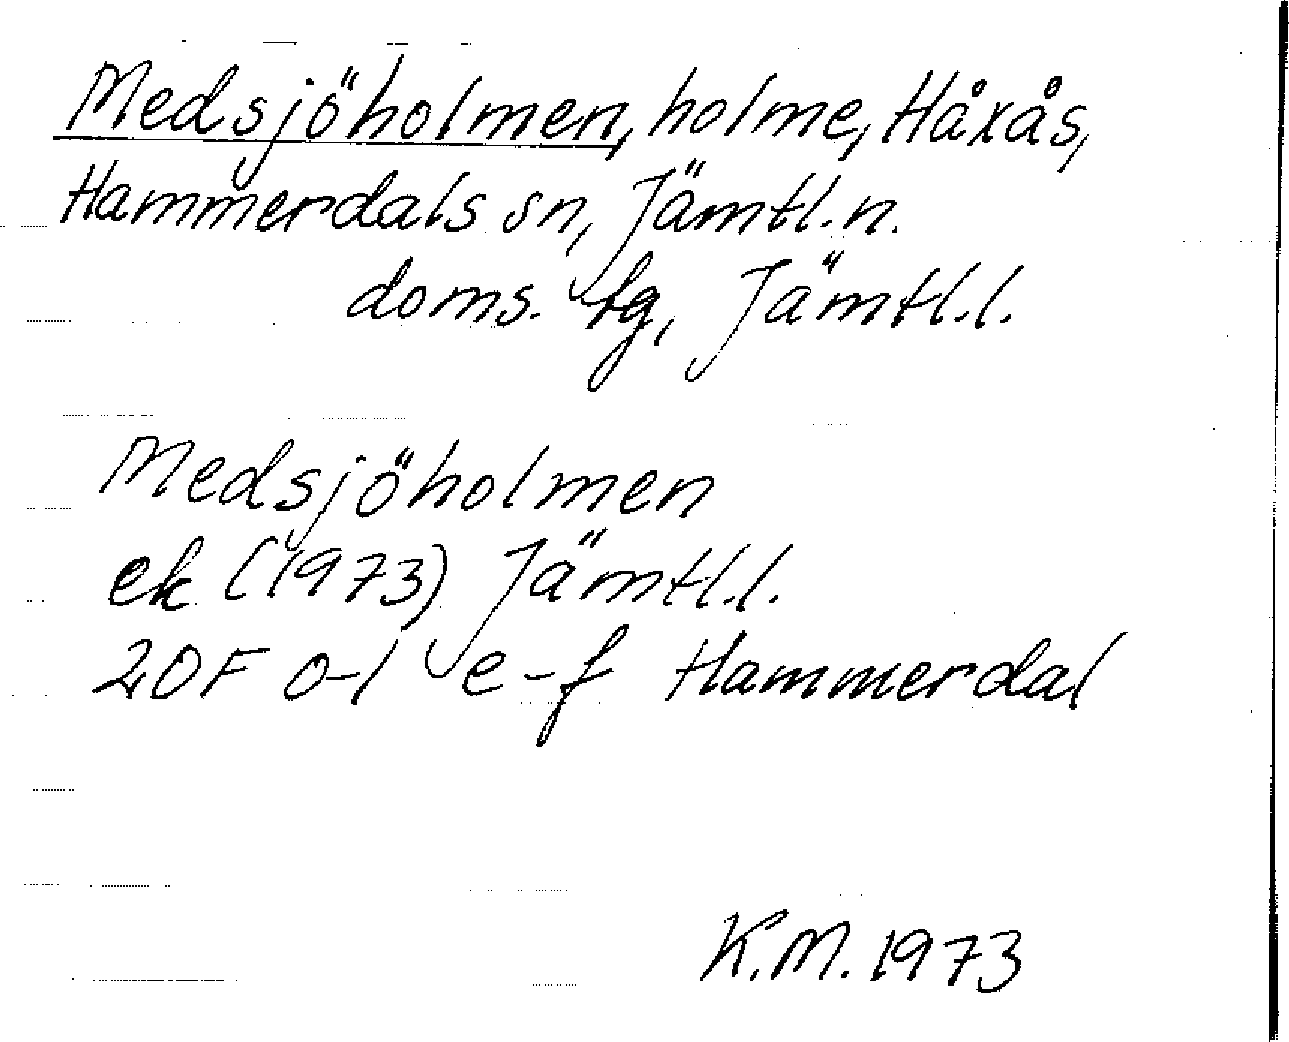 Medsjöholmen, holme, Håxås,
Hammerdals sn, Jämtl. n.
doms. tg, Jämtl.l.
Medsjöholmen
ek (1973) Jämtl.l.
20F 0-1 e-f Hammerdal
K.M. 1973